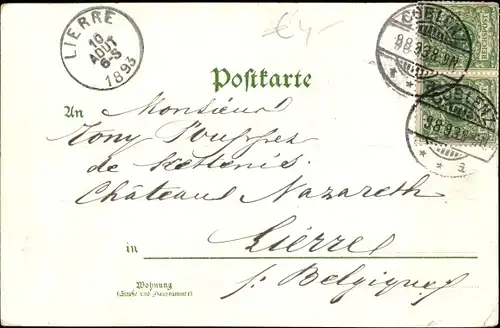 LIERRE
10
AOUT
6-S
1893
€4-
COBLENZ
Postkarte
An Monsieur
Tony
de Kettenis
Château Nazareth
in Lierre
p. Belgique
Wohnung
(Straße und Hausnummer)